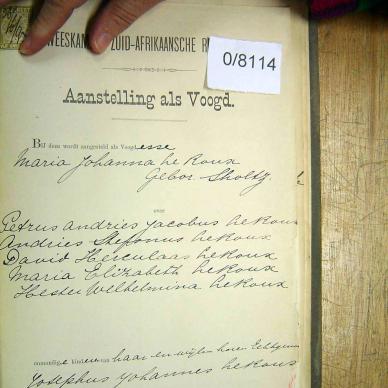 WEESKAM ZUID-AFRIKAANSCHE R
0/8114
Aanstelling als Voogd.
Bij deze wordt aangesteld als Voogdesse
Maria Johanna le Roux
Gebor. Sholtz.
over
Petrus Andries Jacobus le Roux
Andries Stefanus le Roux
David Herculaas le Roux
Maria Elizabeth le Roux
Hester Wilhelmina le Roux
onmondige kinderen van haar en wijlen haren Echtgen
Josephus Johannes le Roux